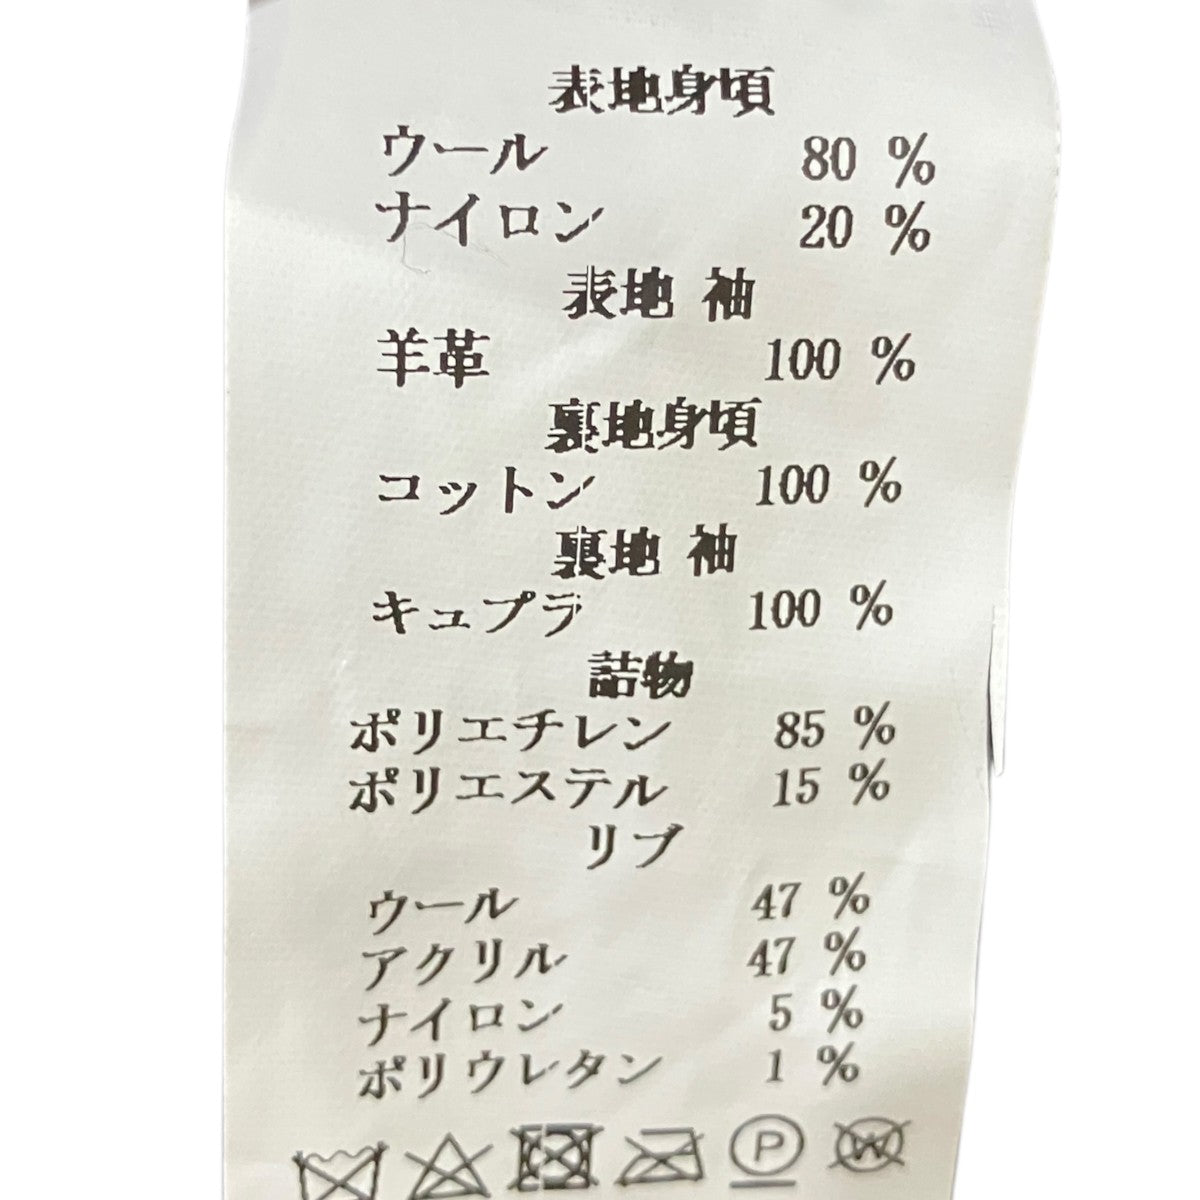 表地身頃
ウール 80 %
ナイロン 20 %
表地 袖
羊革 100 %
裏地身頃
コットン 100 %
裏地 袖
キュプラ 100 %
詰物
ポリエチレン 85 %
ポリエステル 15 %
リブ
ウール 47 %
アクリル 47 %
ナイロン 5 %
ポリウレタン 1 %
P W